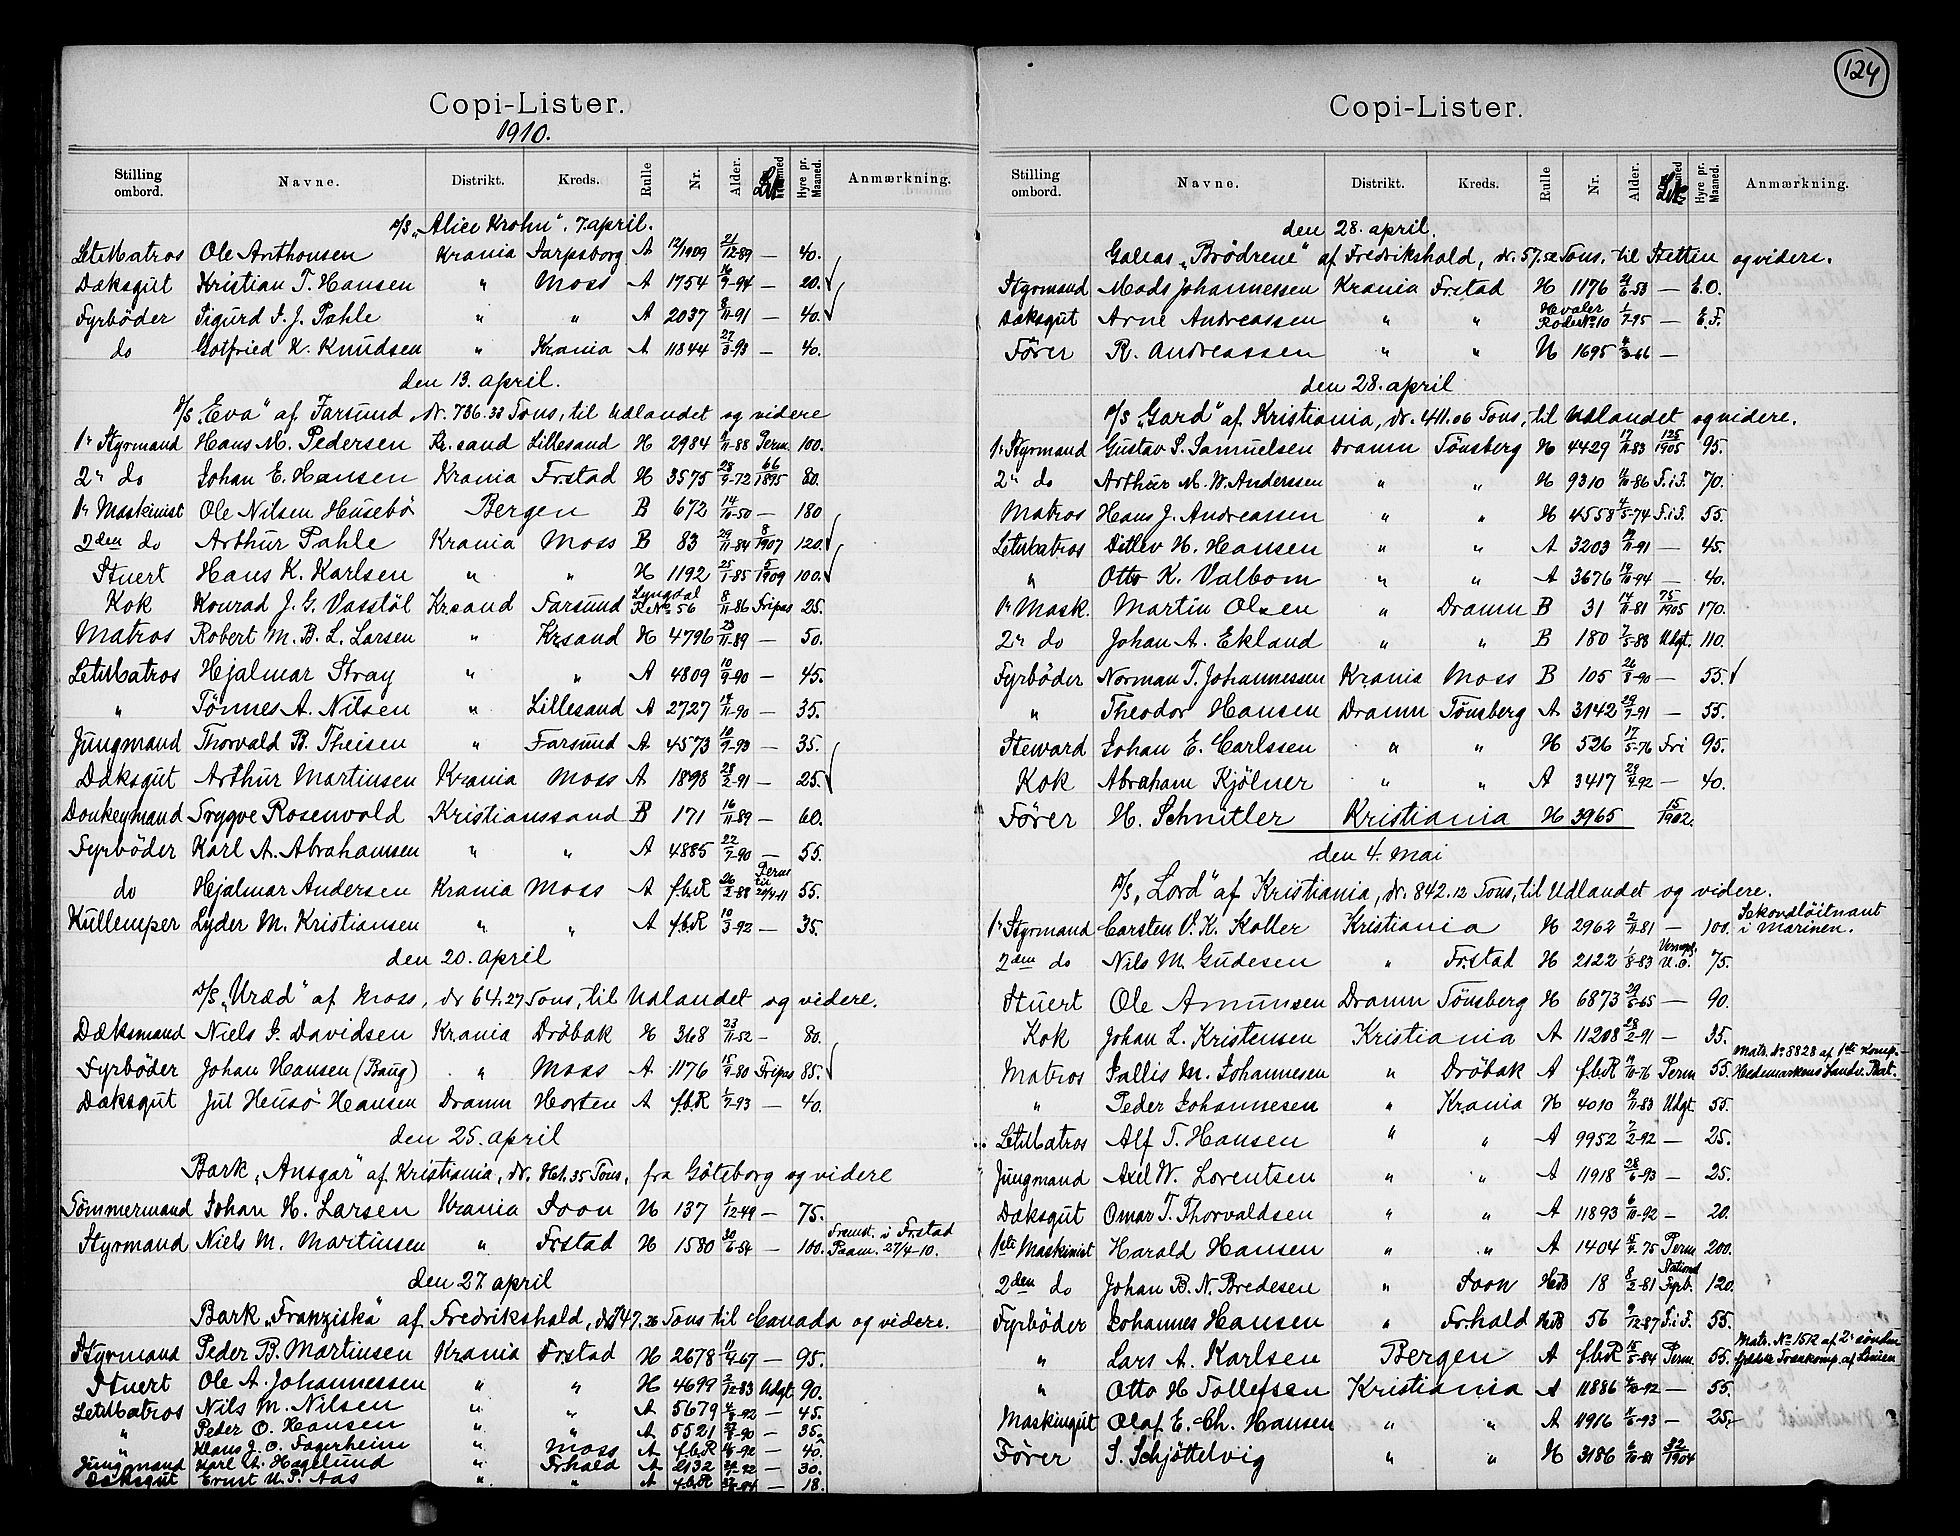 124
Copi-Lister.
1910.
Stilling ombord. Navne. Distrikt. Kreds. Rulle Nr. Alder. Hyre pr. Maaned. Anmærkning.
D/S „Alice Krohn“. 7. april.
LetMatros Ole Anthonsen Krania Sarpsborg A 12/1909 21/12-89 — 40.
Dæksgut Kristian T. Hansen " Moss A 1754 16/9-94 — 20.
Fyrböder Sigurd S. J. Pahle " " A 2037 8/11-91 — 40.
do Gotfried K. Knudsen " Krania A 11844 27/3-93 — 40.
den 13. april.
D/S „Eva“ af Farsund, dr. 736.33 Tons, til Udlandet og videre
1ste Styrmand Hans M. Pedersen Kr.sand Lillesand H 2984 11-88 Perm. 100.
2den do Johan E. Hansen Krania Fr.stad H 3575 28/9-72 66/1895 80.
1ste Maskinist Ole Nilsen Husebö Bergen B 672 14/10-50 — 180
2den do Arthur Pahle Krania Moss B 83 29/11-84 8/1907 120.
Stuert Hans K. Karlsen " " H 1192 25/1-85 5/1909 100.
Kok Konrad J. G. Vasstöl Kr.sand Farsund Lyngdal R. No 56 8/11-86 Fripas 25.
Matros Robert M. B. L. Larsen " Kr.sand H 4796 23/11-89 — 50.
LetMatros Hjalmar Stray " " A 4809 10/9-90 — 45.
" Tönnes A. Nilsen " Lillesand A 2727 14/11-90 — 35.
Jungmand Thorvald B. Theisen " Farsund A 4573 10/9-93 — 35.
Dæksgut Arthur Martinsen Krania Moss A 1898 28/2-91 — 25.
Donkeymand Trygve Rosenvold Kristianssand B 171 16/11-89 — 60.
Fyrböder Karl A. Abrahamsen " " A 4885 22/7-90 — 55.
do Hjalmar Andersen Krania Moss A f.b.R 26/5-88 Perm til 20/4-11 55.
Kullemper Lyder M. Kristiansen " " A f.b.R 10/3-92 — 35.
den 20. april
D/S „Uræd“ af Moss, dr 64.27 Tons, til Udlandet og videre.
Dæksmand Niels J. Davidsen Krania Dröbak H 368 23/11-52 - 80.
Fyrböder Johan Hansen (Baug) " Moss A 1176 15/9-80 Fripas 85.
Dæksgut Jul Heusö Hansen Dramn Horten A f.b.R 1/7-93 — 40.
den 25. april
Bark „Ansgar“ af Kristiania, dr. 35 Tons, fra Göteborg og videre
Tömmermand Johan H. Larsen Krania Soon H 137 1/12-49 — 75.
Styrmand Niels M. Martinsen " Fr.stad H 1580 30/6-54 — 100. Fremst. i Fr.stad Paam. 27/4-10.
den 27. april
Bark „Franziska“ af Fredrikshald, dr. 747.26 Tons til Canada og videre.
Styrmand Peder B. Martinsen Krania Fr.stad H 2678 11/4-67 — 95.
Stuert Ole A. Johannessen " " H 4699 2/12-83 Udgt 90.
LetMatros Nils M. Nilsen " " A 5679 4/8-92 — 45.
" Peder O. Hansen " " A 5521 -90 — 35.
" Hans J. O. Fagerheim " Moss A f.b.R -92 — 40.
Jungmand Karl A. Hagelund " Fr.hald A 2132 -92 — 30.
Dæksgut Ernst U. P. Aas " " A f.b.R — 18.
Copi-Lister.
Stilling ombord. Navne. Distrikt. Kreds. Rulle Nr. Alder. Hyre pr. Maaned. Anmærkning.
den 28. april.
Galeas „Brödrene“ af Fredrikshald, dr. 57.52 Tons, til Stettin og videre.
Styrmand Mads Johannessen Krania Fr.stad H 1176 /6-53 — E.O.
Dæksgut Arne Andreassen " " Hvaler Rode No 10 1/7-95 — E.F.
Förer R. Andreassen " " H 1695 /3-66 —
den 28. april
D/S „Gard“ af Kristiania, dr. 411.06 Tons, til Udlandet og videre.
1ste Styrmand Gustav S. Samuelsen Dramn Tönsberg H 4429 17/11-83 125/1905 95.
2den do Arthur M. W. Anderssen " " H 9310 /10-86 F.i.F. 70.
Matros Hans J. Andreassen " " H 4558 /5-74 F.i.F. 55.
LetMatros Ditlev H. Hansen " " A 3203 /11-91 — 45.
" Otto K. Valbom " " A 3676 19/10-94 — 40.
1ste Mask. Martin Olsen " Dramn B 31 14/11-81 75/1905 170.
2den do Johan A. Ekland " " B 180 7/5-83 Udgt. 110.
Fyrböder Norman T. Johannessen Krania Moss B 105 26/8-90 — 55.
" Theodor Hansen Dramn Tönsberg A 3142 29/7-91 — 55.
Steward Johan E. Carlssen " " H 526 17/5-76 Fri 95.
Kok Abraham Kjölner " " A 3417 29/4-92 — 40.
Förer H. Schnitler Kristiania H 3965 15/1902.
den 4. Mai
D/S „Lord“ af Kristiania, dr. 842.12 Tons, til Udlandet og videre.
1ste Styrmand Carsten V. K. Koller Kristiania H 2962 2/11-81 — 100. Sekondlöitnant i Marinen.
2den do Nils M. Gudesen " Fr.stad H 2122 1/8-83 U.O. 75.
Stuert Ole Amunsen Dramn Tönsberg H 6873 29/5-65 — 90.
Kok Johan L. Kristensen Kristiania A 11208 28/2-91 — 35.
Matros Jallis M. Johannesen " Dröbak A f.b.R /10-76 Perm 55. Mats. No 8828 af 1ste Komp. Hedemarkens Landv. Bat.
" Peder Johannesen " Krania H 4010 /11-83 Udgt. 55.
LetMatros Alf T. Hansen " " A 9952 7/2-92 — 25.
Jungmand Axel W. Lorentsen " " A 11918 28/6-93 — 25.
Dæksgut Omar T. Thorvaldsen " " A 11893 6/10-92 — 20.
1ste Maskinist Harald Hansen " " A 1404 /9-75 Perm 200.
2den do Johan B. N. Bredesen " Soon HB 18 8/2-81 National Fyrb. 120.
Fyrböder Johannes Hansen " Fr.hald HB 56 9/12-87 F.i.F. 55.
" Lars A. Karlsen Bergen A f.b.R 15/5-84 Perm. 55. Mats. No 1512 af 2.
" Otto H Tollefsen Kristiania A 11886 /10-92 — 55.
Maskingut Olaf E. Ch. Hansen " " A 11916 /6-93 — 25.
Förer S. Schjöttelvig " " H 3186 /10-81 32/1904